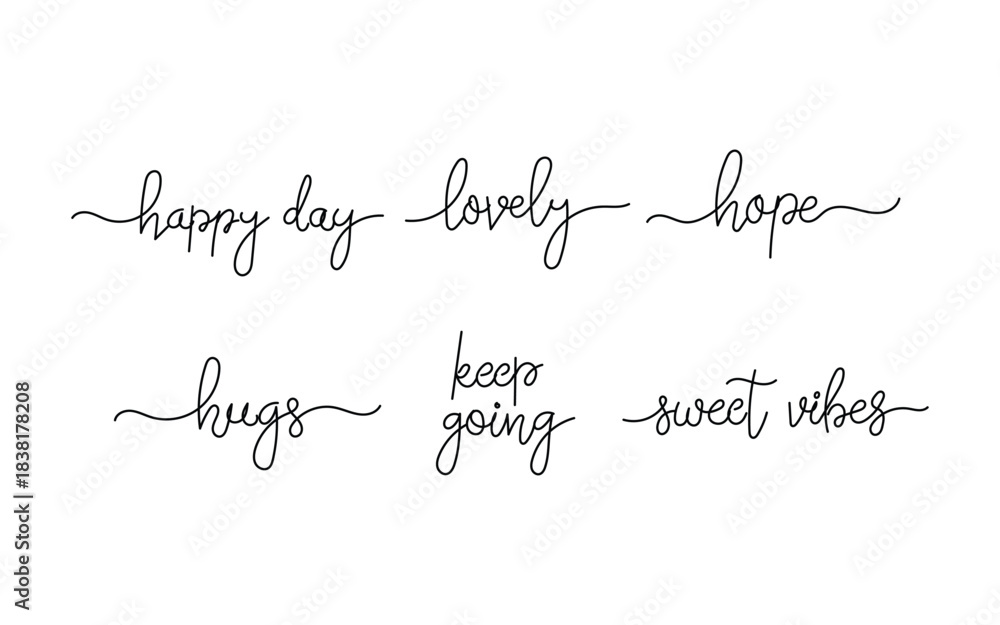 happy day
lovely
hope
hugs
keep
going
sweet vibes
Adobe Stock | #1838178208
Adobe Stock